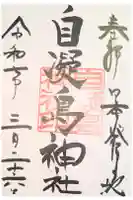 奉拝 日本発祥地
自凝島神社
令和 年 三月二十六日